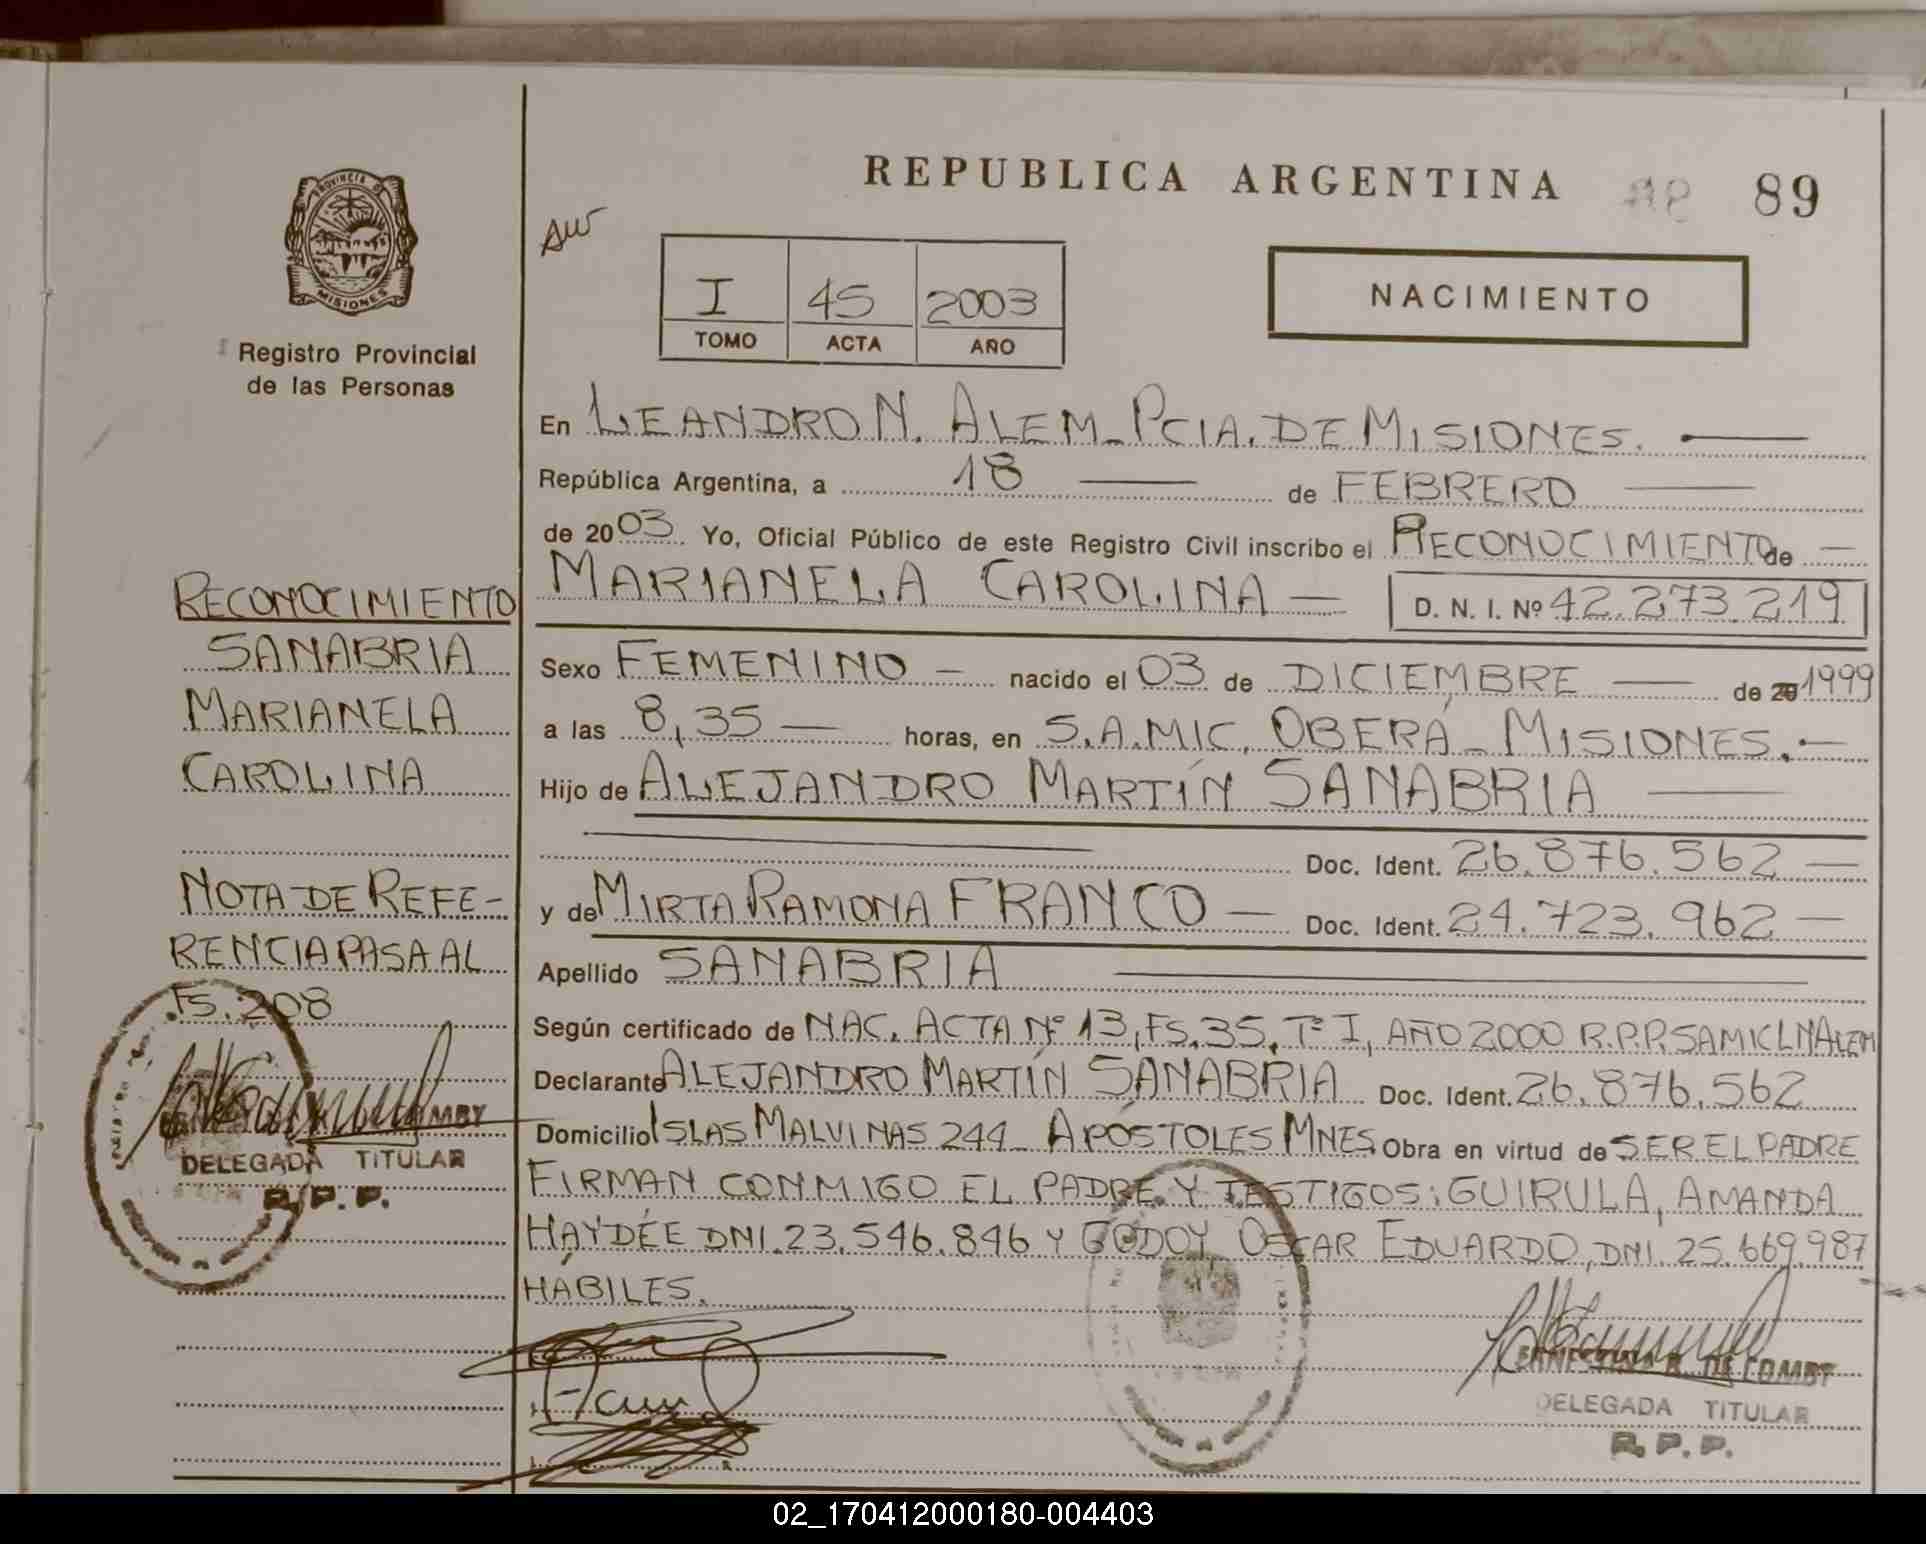 REPUBLICA ARGENTINA
89
PROVINCIA DE
MISIONES
Registro Provincial
de las Personas
I 45 2003
TOMO ACTA AÑO
NACIMIENTO
En LEANDRO N. ALEM - PCIA. DE MISIONES.
República Argentina, a 18 de FEBRERO
de 2003 Yo, Oficial Público de este Registro Civil inscribo el RECONOCIMIENTO de
MARIANELA CAROLINA — D. N. I. Nº 42.273.219
Sexo FEMENINO — nacido el 03 de DICIEMBRE — de 1999
a las 8,35 — horas, en S.A.MIC. OBERÁ - MISIONES. —
Hijo de ALEJANDRO MARTÍN SANABRIA
Doc. Ident. 26.876.562 —
y de MIRTA RAMONA FRANCO — Doc. Ident. 24.723.962 —
Apellido SANABRIA
Según certificado de NAC. ACTA Nº 13, FS. 35, Tº I, AÑO 2000 R.P.P. SAMIC L N ALEM
Declarante ALEJANDRO MARTÍN SANABRIA Doc. Ident. 26.876.562
Domicilio ISLAS MALVINAS 244 - APÓSTOLES MNES Obra en virtud de SER EL PADRE
FIRMAN CONMIGO EL PADRE Y TESTIGOS: GUIRULA, AMANDA
HAYDÉE DNI. 23.546.846 Y GODOY OSCAR EDUARDO, DNI. 25.669.987
HÁBILES.
RECONOCIMIENTO
SANABRIA
MARIANELA
CAROLINA
NOTA DE REFE-
RENCIA PASA AL
FS. 208
DELEGADA TITULAR
R. P. P.
DE COMBY
DELEGADA TITULAR
R. P. P.
02_170412000180-004403